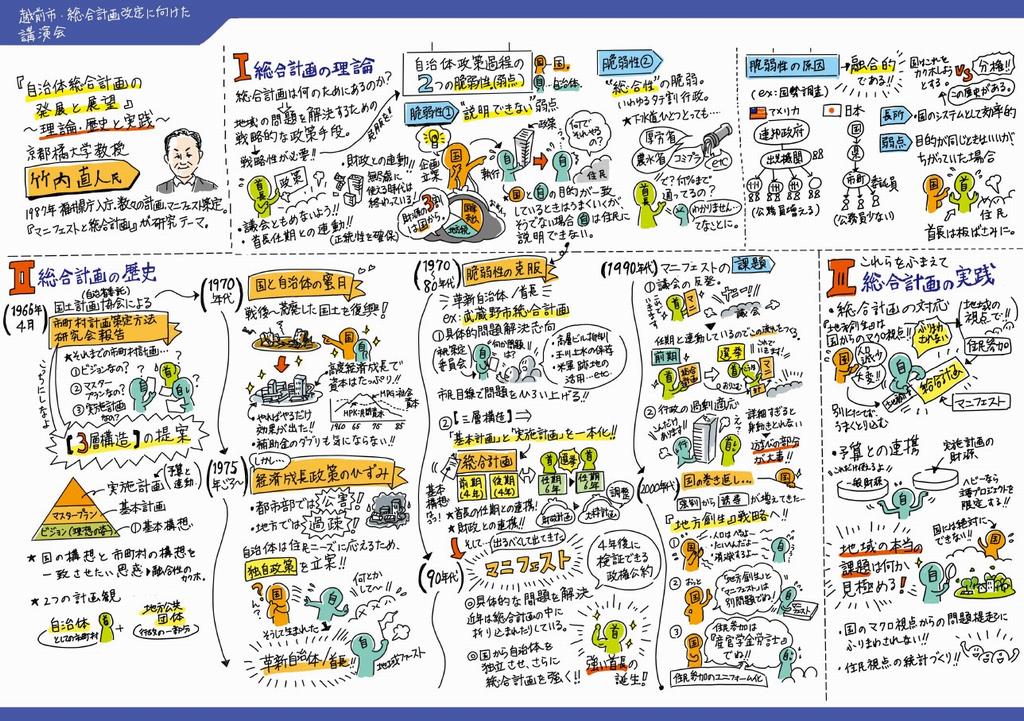 越前市・総合計画改定に向けた
講演会
『自治体総合計画の
発展と展望』
～理論・歴史と実践～
京都橘大学教授
竹内直人氏
『マニフェストと総合計画』が研究テーマ。
I 総合計画の理論
総合計画は何のためにあるのか?
地域の問題を解決するための
戦略的な政策手段。
戦略性が必要!!
首長
政策
・議会ともめないよう!!
・首長任期との連動!
(正統性を確保)
・財政との連動!!
無尽蔵に
使える時代は
終わっている!
財源の3割
は国から
地方税
自治体政策過程の
2つの脆弱性(弱点)
国…国。
自…自治体。
脆弱性①
"説明できない"弱点
企画
立案
国
執行
自
政策
何で
そんなことやってるの?
住民
国と自の目的が一致
しているときはうまくいくが、
そうでない場合自は住民に
説明できない。
脆弱性②
"総合性"の脆弱。
いわゆるタテ割行政。
★下水道ひとつとっても…
厚労省
農水省
コミプラ
etc
で?何%まで
通ってるの?
首長
わかりません…
てなことに。
脆弱性の原因
融合的
である!!
VS
分権!!
この歴史がある。
(ex:国勢調査)
アメリカ
連邦政府
出先機関
88
(公務員増える)
日本
国
県
市町
委託
(公務員少ない)
長所
・国のシステムとして効率的
弱点
目的が同じときはいいが、
ちがっていた場合
国
首長
住民
首長は板ばさみに。
II 総合計画の歴史
1966年
4月
(自治省委託)
国土計画協会による
市町村計画策定方法
研究会報告
★それまでの市町村計画…
①ビジョンなの?
②マスター
プランなの?
③実施計画
なの?
こっちにしなよ
【3層構造】の提案
実施計画
予算と
連動。
マスタープラン
基本計画
ビジョン(理想の姿)
①基本構想
★国の構想と市町村の構想を
一致させたい思惑
融合性の
カクホ。
★2つの計画観
自治体
としての市町村
首
+
地方公共
団体
行政の一部分
1970
年代
国と自治体の蜜月
戦後〜荒廃した国土を復興!
国
自
高度経済成長で
資本はたっぷり!!
・やればやるだけ
効果が出た!!
MPK・消費資本
MPG・社会
資本
1960 65 75 85
・補助金のダブりも気にならない!!
1975
年ごろ〜
しかし…
経済成長政策のひずみ
・都市部では公害!
・地方では過疎!
自治体は住民ニーズに応えるため、
独自政策を立案!!
国
ん?
自
何とか
して〜!!
そうして生まれた
革新自治体/首長!!
自
地域ファースト
1970
80年代
脆弱性の克服
革新自治体/首長
ex:武蔵野市総合計画
①具体的問題解決志向
計画策定
委員会
何が問題
だ?
自
・高層ビル抑制
・玉川上水の保存
・米軍跡地の
活用…etc
市民目線で問題をひろい上げる!!
②【三層構造】
『基本計画』と『実施計画』を一本化!!
総合計画
前期
(4年)
後期
(4年)
首
選挙
首
任期
任期
基本
構想は
なし!
★首長の任期との連携!!
★財政との連携!!
財政計画
調整
90年代
そして…出るべくして出てきた
マニフェスト
4年後に
検証できる
政権公約
◎具体的な問題を解決
近年は総合計画の中に
折り込まれたりしている。
◎国から自治体を
独立させ、さらに
総合計画を強く!!
首
強い首長の
誕生!
(1990年代)マニフェストの課題
①議会の反発。
首
マニ
議会
任期と連動しているのでこの流れをつくる
前期
総合
計画
選挙
首
マニ
②行政の過剰適応
行
詳細すぎると
身動きとれない
が大事!!
(2000年代)
国の巻き返し…
が増えてきた…
『地方創生』戦略へ!!
①
国
②
おっと
国
『地方創生』と
『マニフェスト』は
別問題でね!
③
国
住民参加は
『産官学金労言士』
でね!!
住民参加のユニフォーム化
III これらをふまえて
総合計画の実践
・総合計画の対応
『地方創生』は
国からのマクロ視点!!
国
人口減少
大変!!
ふりまわされない
地域の
視点で!!
住民参加
自
総合計画
マニフェスト
・予算との連携
一般財源
自
実施計画の
財源
国には絶対に
できない!!
国
自
地域の本当の
課題は何か
見極める!
・国のマクロ視点からの問題提起に
ふりまわされない!!
・住民視点の統計づくり!!